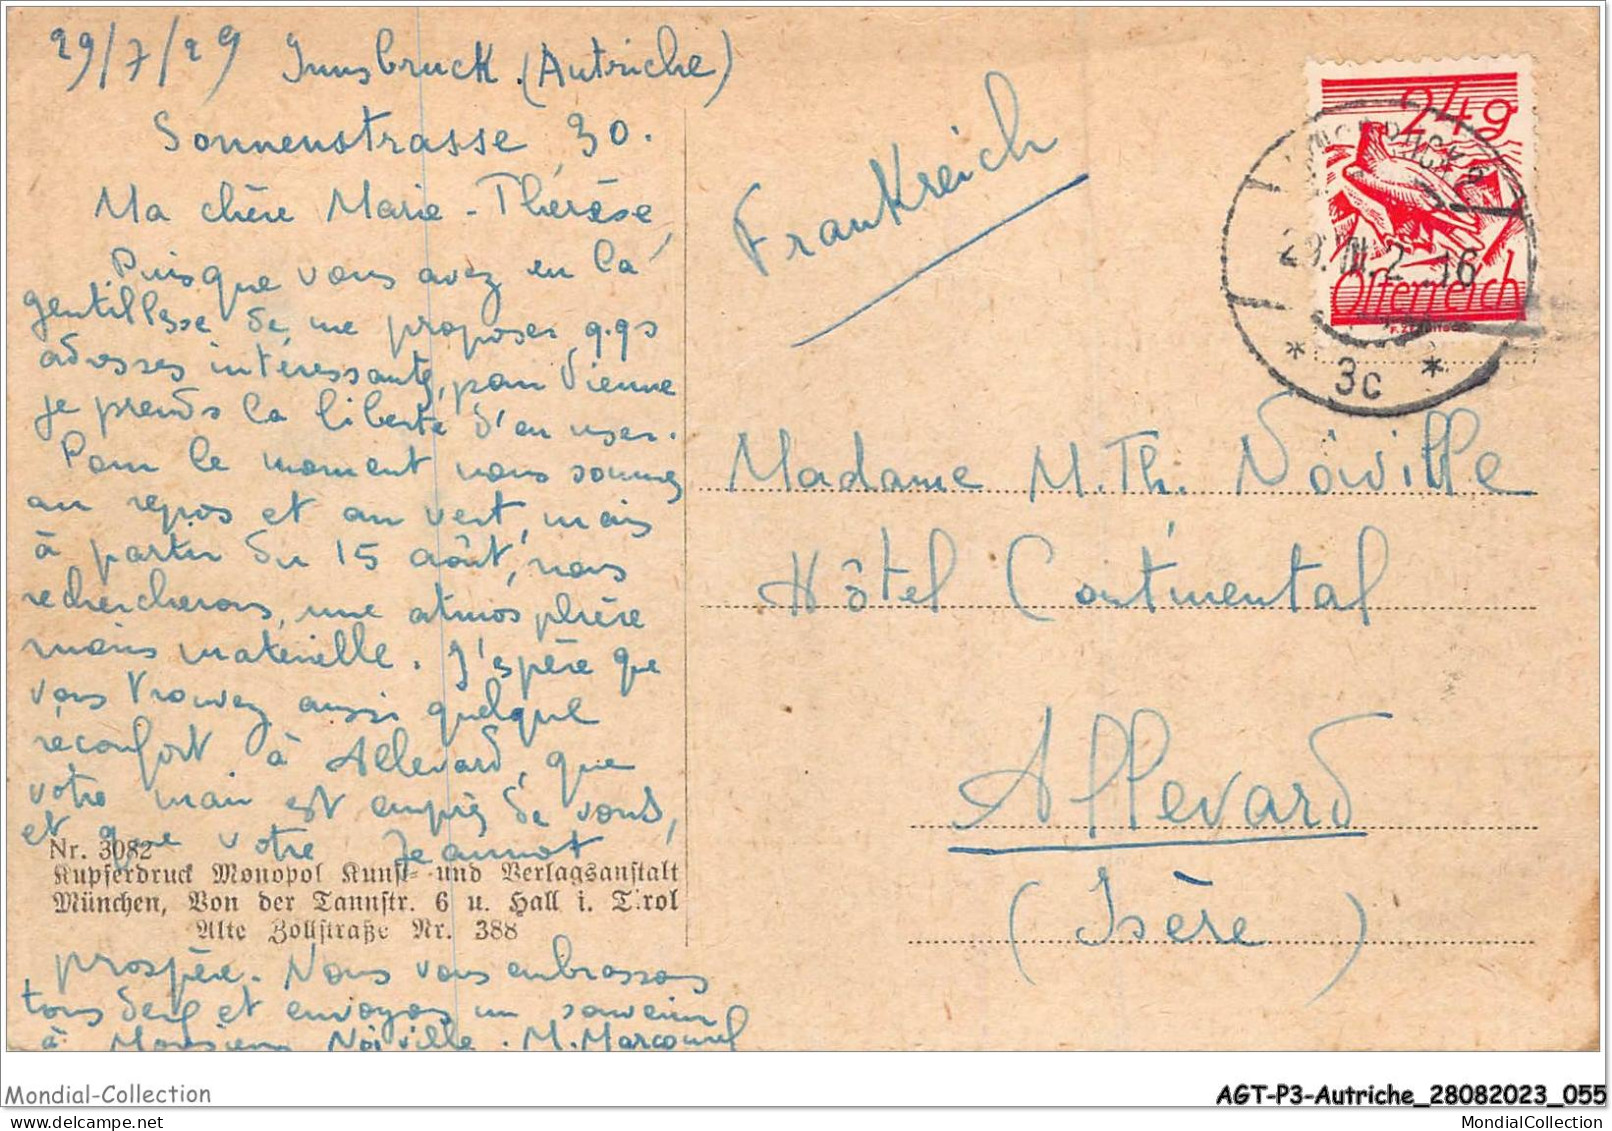 29/7/29 Innsbruck. (Autriche)
Sonnenstrasse 30.
Ma chère Marie-Thérèse,
Puisque vous avez eu la
gentillesse de me proposer qqs
adresses intéressantes, pour Vienne
je prends la liberté d'en user.
Pour le moment nous sommes
au repos et au vert, mais
à partir du 15 août, nous
rechercherons, une atmosphère
moins materielle. J'espère que
vous trouvez aussi quelque
réconfort à Allevard, que
votre mari est auprès de vous,
et que votre Jeannot
Nr. 3082
Kupferdruck Monopol Kunst- und Verlagsanstalt
München, Von der Tannstr. 6 u. Hall i. Tirol
Alte Zollstraße Nr. 388
prospère. Nous vous embrassons
tous deux et envoyons un souvenir
à Monsieur Noiville. M. Marcourel
Frankreich
24g
Österreich
INNSBRUCK 2
* 3c *
Madame M. Th. Noiville
Hôtel Continental
Allevard
(Isère)
Mondial-Collection
AGT-P3-Autriche_28082023_055
MondialCollection